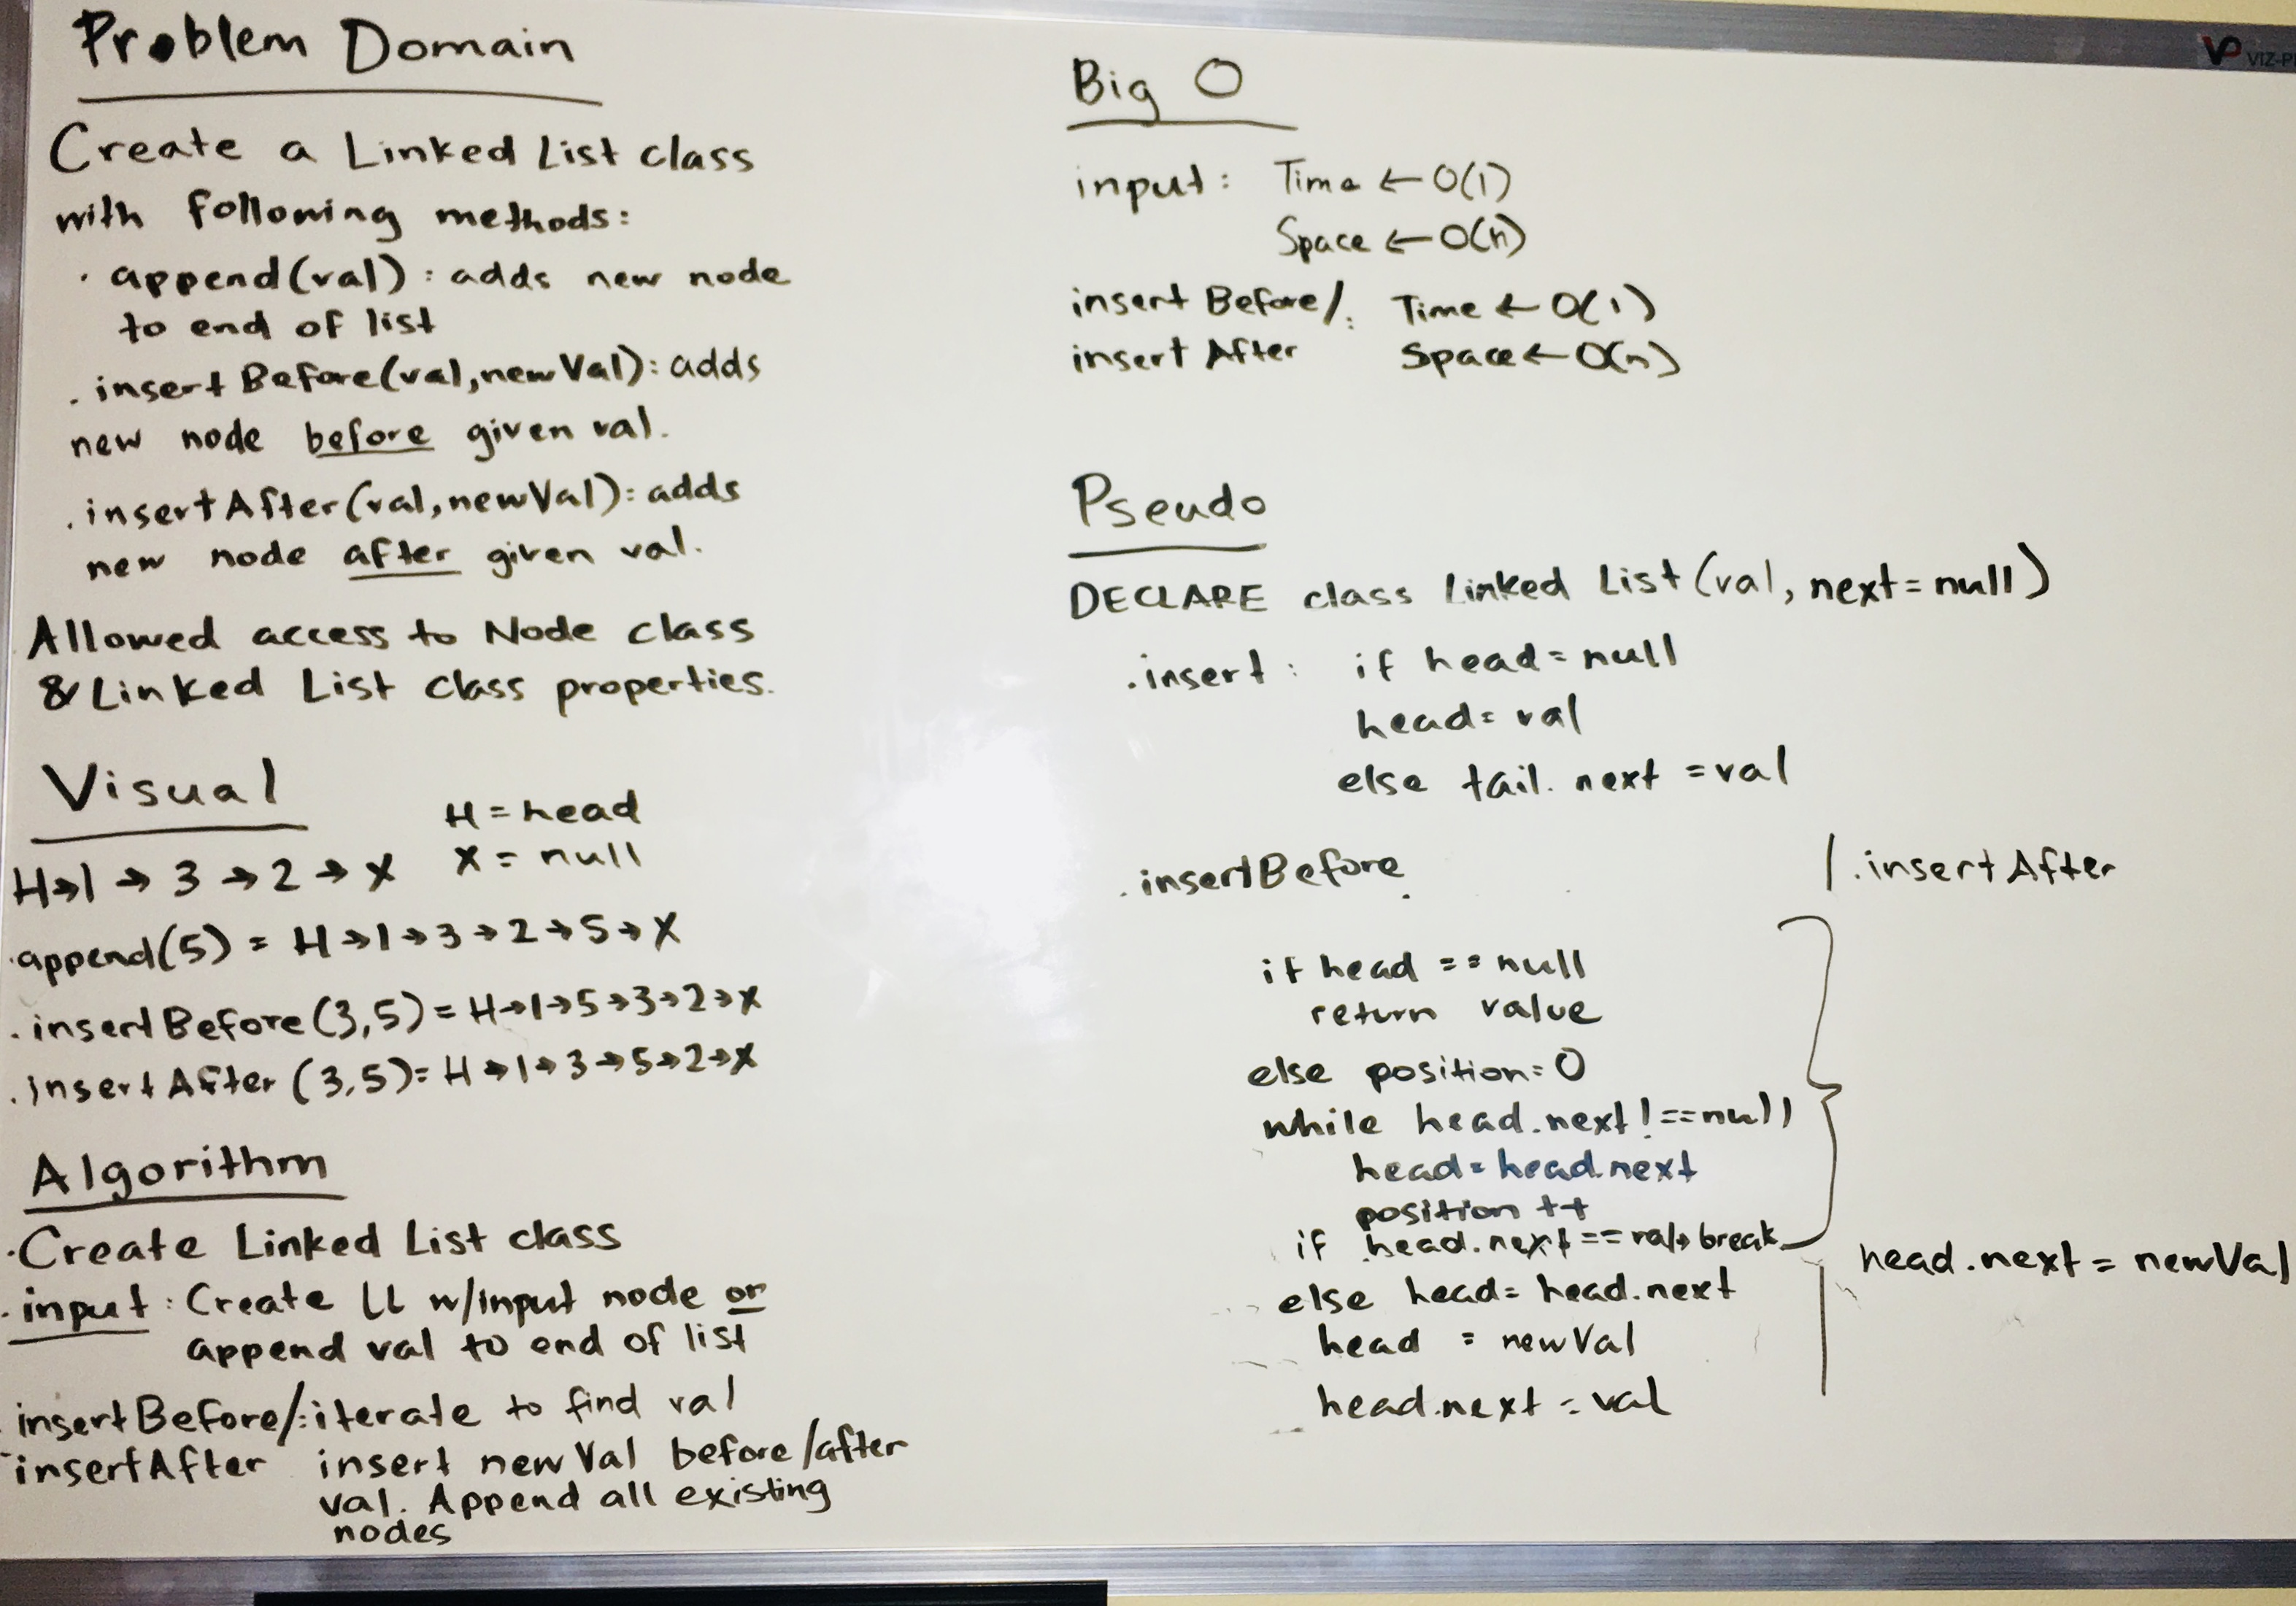 Problem Domain
Create a Linked List class
with following methods:
· append(val): adds new node
to end of list
. insertBefore(val, newVal): adds
new node before given val.
. insertAfter(val, newVal): adds
new node after given val.
Allowed access to Node class
& Linked List class properties.
Visual
H = head
X = null
H→1→3→2→X
.append(5) = H→1→3→2→5→X
.insertBefore(3,5) = H→1→5→3→2→X
.insertAfter(3,5) = H→1→3→5→2→X
Algorithm
·Create Linked List class
. input: Create LL w/input node or
append val to end of list
insertBefore/: iterate to find val
insertAfter insert newVal before/after
val. Append all existing
nodes
VP VIZ-P
Big O
input: Time ← O(1)
Space ← O(n)
insert Before/: Time ← O(1)
insert After Space ← O(n)
Pseudo
DECLARE class Linked List (val, next=null)
.insert: if head = null
head = val
else tail.next = val
.insertBefore | .insertAfter
if head == null
return value
else position = 0
while head.next !== null
head = head.next
position ++
if head.next == val→ break
else head = head.next
head = newVal
head.next = val
head.next = newVal